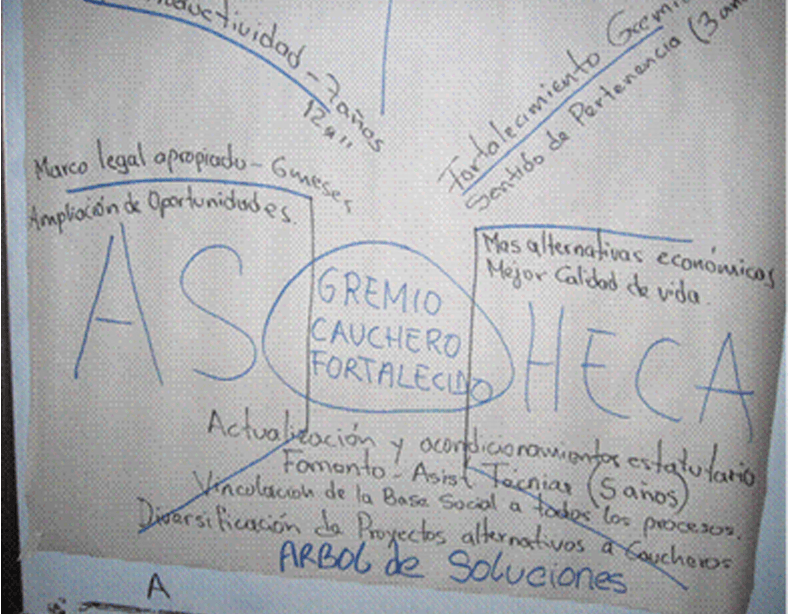 ductividad - 7 años
12 a "
Fortalecimiento Gremi
Sentido de Pertenencia (3 añ
Marco legal apropiado - 6 meses
Ampliación de Oportunidades.
Mas alternativas económicas
Mejor Calidad de vida.
AS GREMIO CAUCHERO FORTALECIDO HECA
Actualización y acondicionamientos estatutario
Fomento - Asist Tecnias (5 años)
Vinculación de la Base Social a todos los procesos.
Diversificación de Proyectos alternativos a Caucheros
ARBOL de Soluciones
A